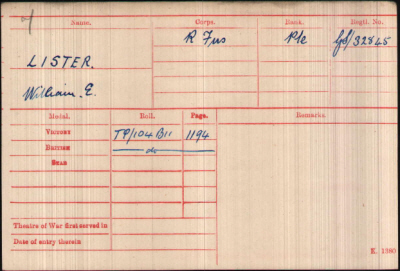 Name. Corps. Rank. Regtl. No.
LISTER. R Fus Pte GS/32845
William. E.
Medal. Roll. Page. Remarks
VICTORY TP/104 B11 1194
BRITISH do
STAR
Theatre of War first served in
Date of entry therein
K. 1380